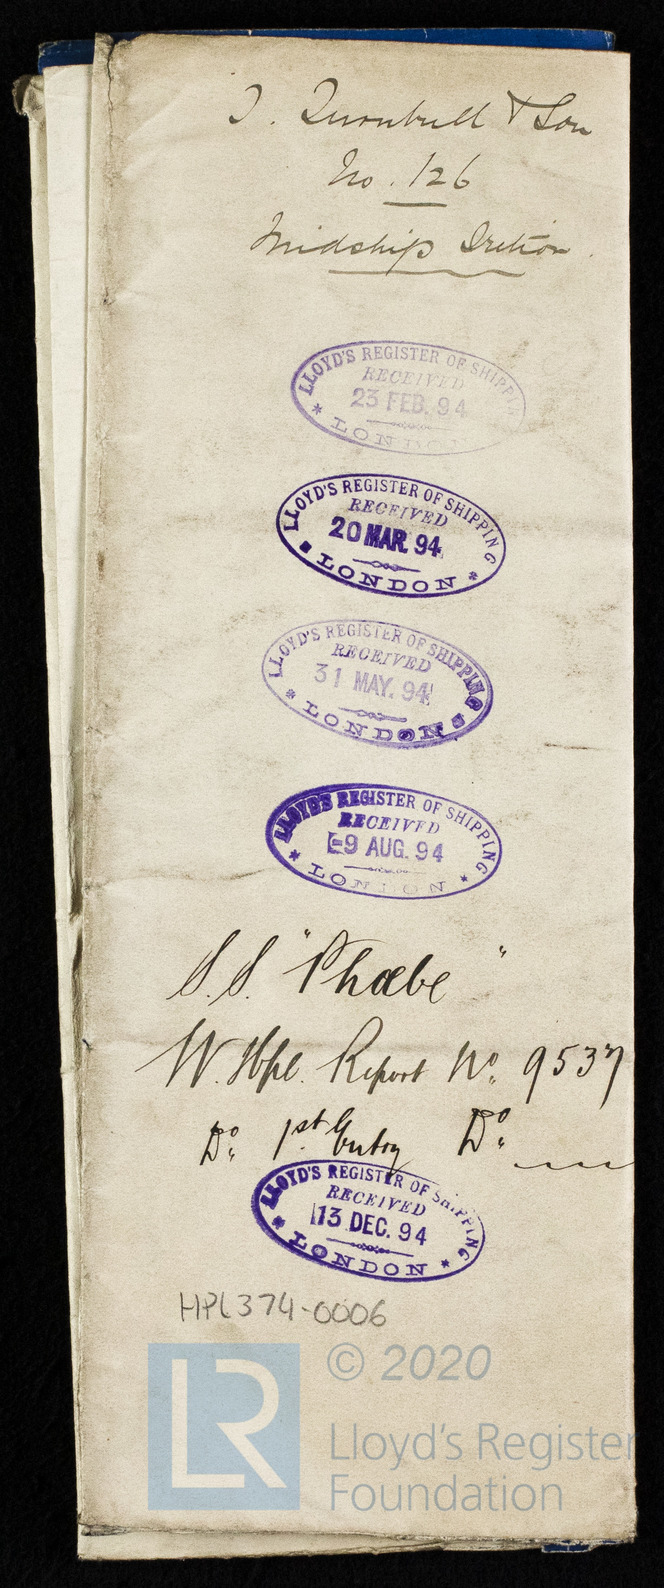 T. Turnbull & Son
No. 126
Midship Section.
LLOYD'S REGISTER OF SHIPPIN
RECEIVED
23 FEB. 94
LONDON
LLOYD'S REGISTER OF SHIPPING
RECEIVED
20 MAR. 94
LONDON
LLOYD'S REGISTER OF SHIPPING
RECEIVED
31 MAY. 94
LONDON
LLOYD'S REGISTER OF SHIPPING
RECEIVED
-9 AUG. 94
LONDON
S.S. "Phœbe"
W. Hpl. Report No. 9537
Do. 1st Entry Do.
LLOYD'S REGISTER OF SHIPPING
RECEIVED
13 DEC. 94
LONDON
HPL374-0006
LR
© 2020
Lloyd's Register
Foundation